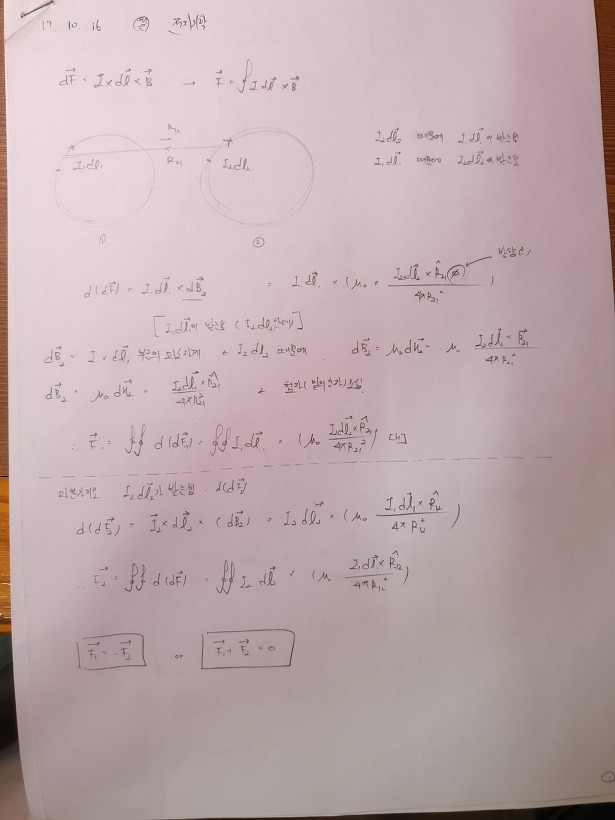 17. 10. 16 ㉪ 전자기학
dF⃗ = I × dl⃗ × B⃗ → F⃗ = ∮ I dl⃗ × B⃗
R₁₂
I₁dl₁ R₂₁ I₂dl₂
① ②
I₂dl⃗₂ 때문에 I₁dl⃗₁이 받는힘
I₁dl⃗₁ 때문에 I₂dl⃗₂이 받는힘
d(dF⃗) = I₁dl⃗₁ × dB⃗₂ = I₁dl⃗₁ × (μ₀ × I₂dl⃗₂ × R̂₂₁ / 4πR₂₁²)
[I₁dl⃗₁이 받는힘 (I₂dl₂ )]
dB⃗₂ = I₁dl⃗₁ 부근의 자계 ← I₂dl₂ 때문에. dB⃗₂ = μ₀dH⃗₂ = μ₀ I₂dl⃗₂ × R⃗₂₁ / 4πR₂₁²
dB⃗₂ = μ₀dH⃗₂ = I₂dl⃗₂ × R̂₂₁ / 4πR₂₁²
∴ F⃗₁ = ∮∮ d(dF⃗₁) = ∮∮ I₁dl⃗₁ × (μ₀ I₂dl⃗₂ × R̂₂₁ / 4πR₂₁²) [N]
I₂dl⃗₂가 받는힘 = d(dF⃗₂)
d(dF⃗₂) = I⃗₂ × dl⃗₂ × (dB⃗₂) = I₂dl⃗₂ × (μ₀ I₁dl⃗₁ × R̂₁₂ / 4πR₁₂²)
∴ F⃗₂ = ∮∮ d(dF⃗) = ∮∮ I₂ dl⃗ × (μ₀ I₁dl⃗₁ × R̂₁₂ / 4πR₁₂²)
F⃗₁ = -F⃗₂ or F⃗₁ + F⃗₂ = 0
①